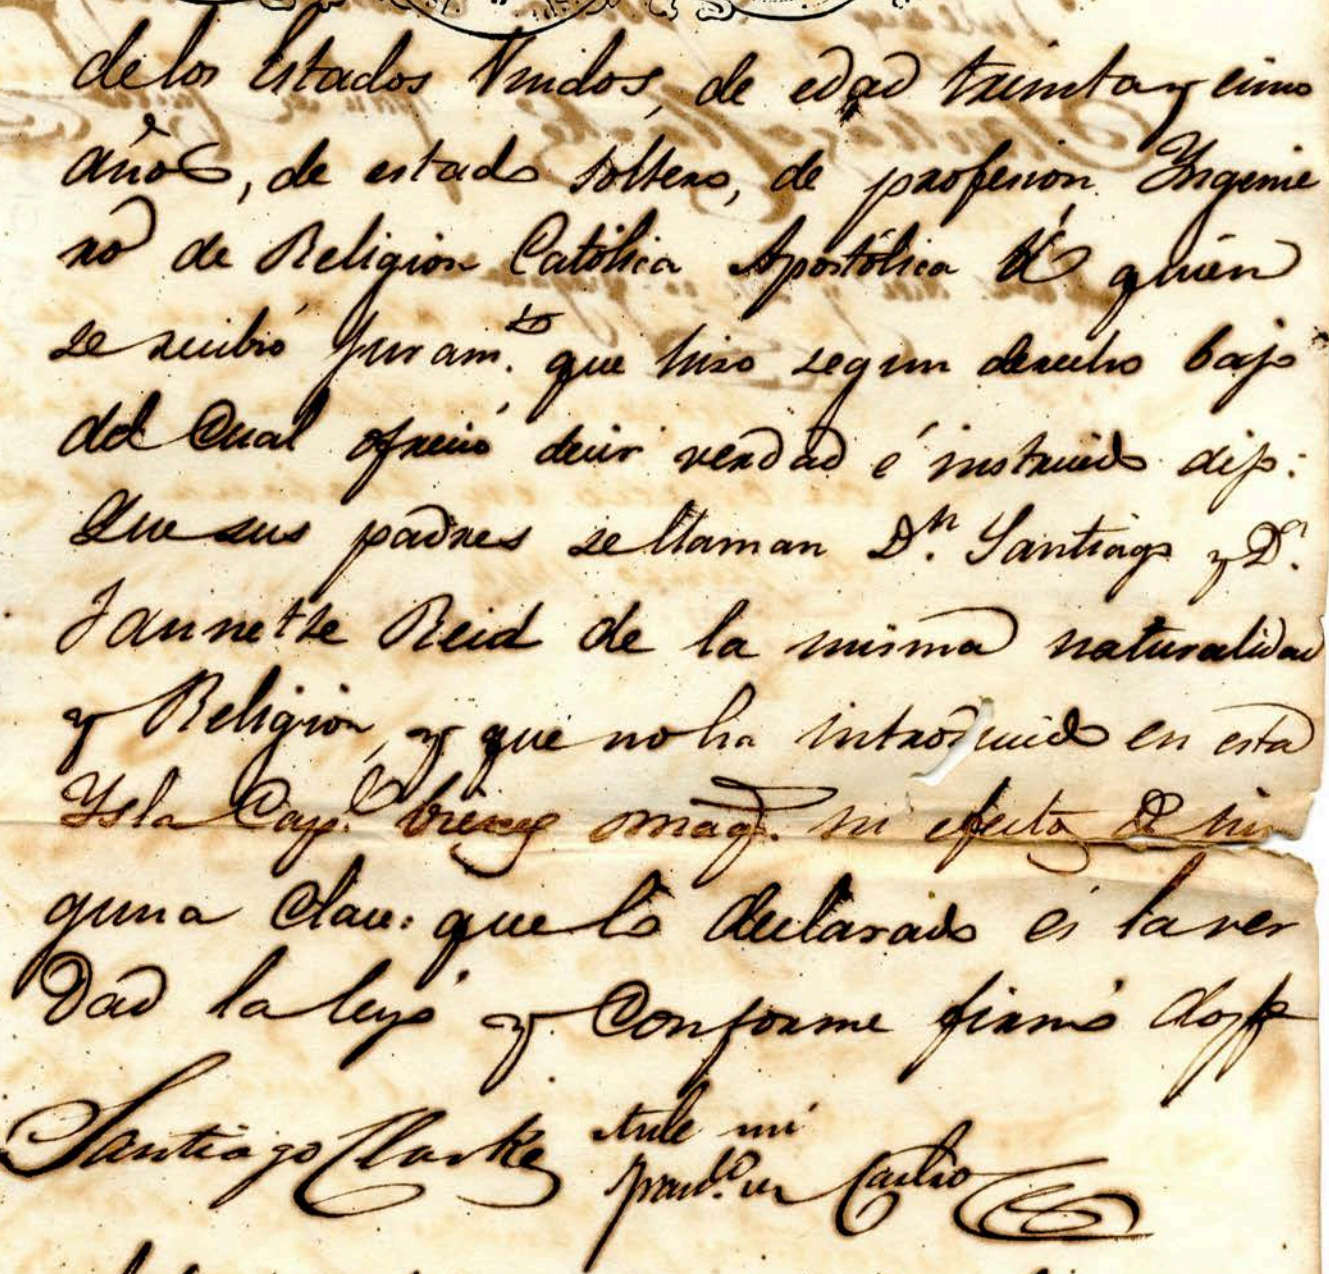 de los Estados Unidos, de edad treinta y cinco
años, de estado soltero, de profesion Yngenie
ro de Religion Católica Apostólica R. quien
se recibió juram.to que hiso segun derecho bajo
del Cual ofreció decir verdad é instruido dijo:
Que sus padres se llaman D.n Santiago y D.a
Jannette Reid de la misma naturalidad
y Religion, y que no ha introducido en esta
Ysla Cap.l bienes maq.s ni efecto de nin
guna Clase: que lo declarado es la ver
dad la leyó y Conforme firmó doy fe
Santiago Clarke Ante mi
Castro